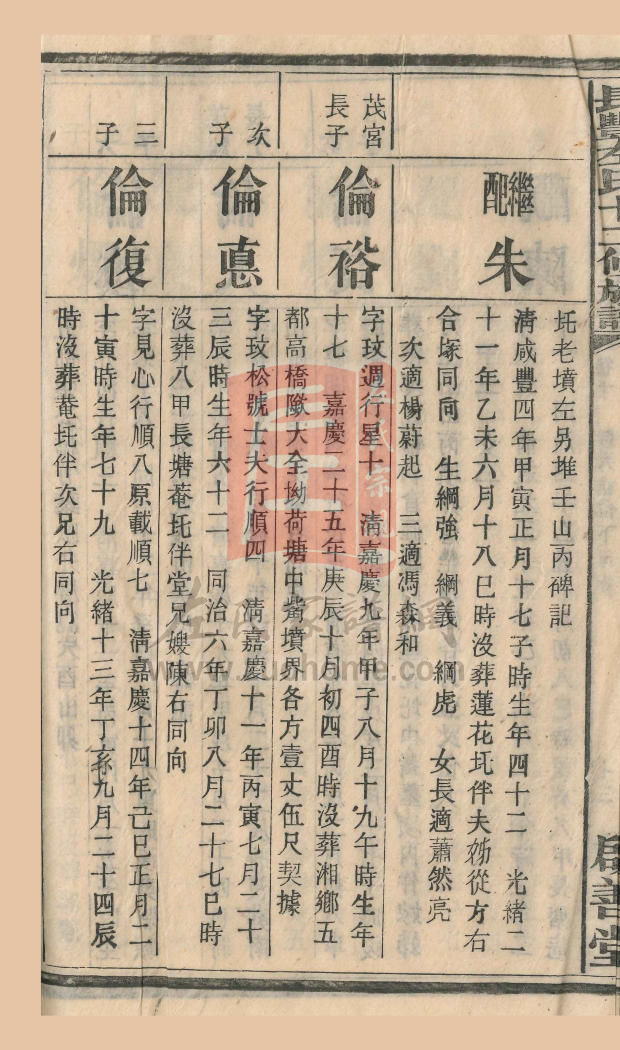 圫老墳左另堆壬山丙碑記
繼配
朱
清咸豐四年甲寅正月十七子時生年四十二 光緒二
十一年乙未六月十八巳時沒葬蓮花圫伴夫 從方右
合塚同向 生綱強 綱義 綱彪 女長適蕭然亮
次適楊蔚起 三適馮森和
茂宮
長子
倫裕
字玟週行星十 清嘉慶九年甲子八月十九午時生年
十七 嘉慶二十五年庚辰十月初四酉時沒葬湘鄉五
都高橋 大全坳荷塘中觜墳界各方壹丈伍尺契據
次
子
倫悳
字玟松號士夫行順四 清嘉慶十一年丙寅七月二十
三辰時生年六十二 同治六年丁卯八月二十七巳時
沒葬八甲長塘菴圫伴堂兄嫂陳右同向
三
子
倫復
字見心行順八原載順七 清嘉慶十四年己巳正月二
十寅時生年七十九 光緒十三年丁亥九月二十四辰
時沒葬菴圫伴次兄右同向
啟善堂
www.ouhome.com